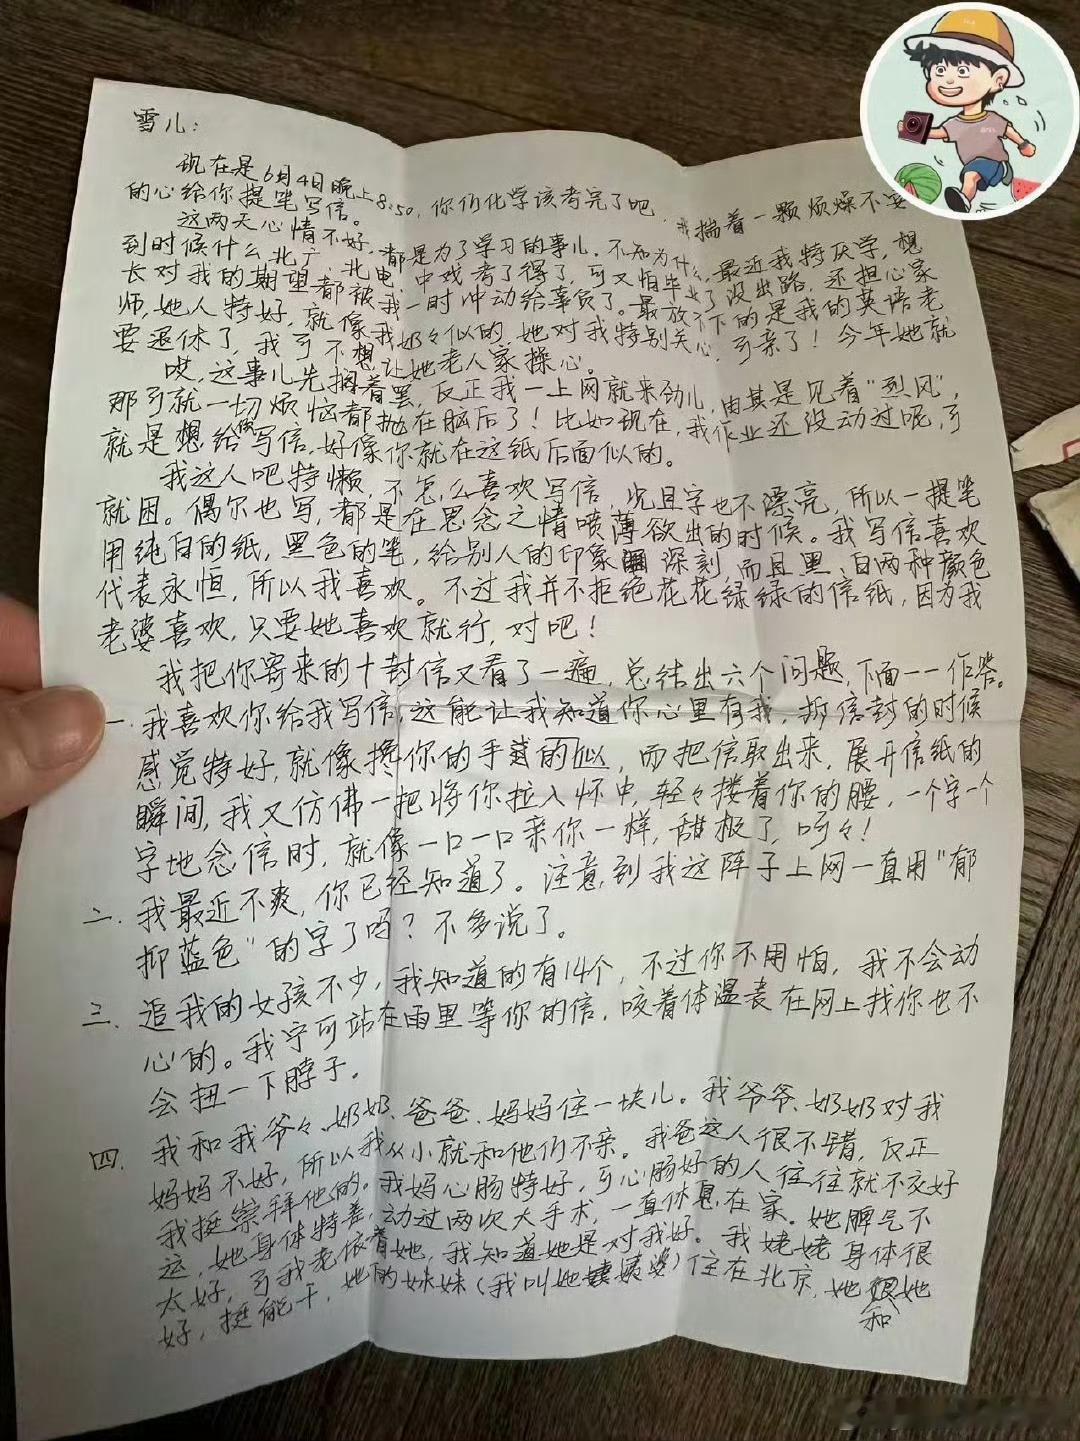 雪儿：
现在是6月4日晚上8:50，你们化学该考完了吧，我揣着一颗烦燥不安
的心给你提笔写信。
这两天心情不好，都是为了学习的事儿。不知为什么，最近我特厌学，想
到时候什么北广、北电、中戏考了得了，可又怕毕业了没出路，还担心家
长对我的期望都被我一时冲动给辜负了。最放不下的是我的英语老
师，她人特好，就像我奶々似的，她对我特别关心，可亲了！今年她就
要退休了，我可不想让她老人家操心。
哎，这事儿先搁着罢，反正我一上网就来劲儿，由其是见着“烈风”，
那可就一切烦恼都抛在脑后了！比如现在，我作业还没动过呢，可
就是想给你写信，好像你就在这纸后面似的。
我这人吧特懒，不怎么喜欢写信，况且字也不漂亮，所以一提笔
就困。偶尔也写，都是在思念之情喷薄欲出的时候。我写信喜欢
用纯白的纸，黑色的笔，给别人的印象深刻，而且黑、白两种颜色
代表永恒，所以我喜欢。不过我并不拒绝花花绿绿的信纸，因为我
老婆喜欢，只要她喜欢就行，对吧！
我把你寄来的十封信又看了一遍，总结出六个问题，下面一一作答。
一．我喜欢你给我写信，这能让我知道你心里有我，拆信封的时候
感觉特好，就像搀你的手的似，而把信取出来，展开信纸的
瞬间，我又仿佛一把将你拉入怀中，轻々搂着你的腰，一个字一个
字地念信时，就像一口一口亲你一样，甜极了，呵々！
二．我最近不爽，你已经知道了。注意到我这阵子上网一直用“郁
抑蓝色”的字了吗？不多说了。
三．追我的女孩不少，我知道的有14个，不过你不用怕，我不会动
心的。我宁可站在雨里等你的信，咬着体温表在网上找你也不
会扭一下脖子。
四．我和我爷々、奶奶、爸爸、妈妈住一块儿。我爷爷、奶奶对我
妈妈不好，所以我从小就和他们不亲。我爸这人很不错，反正
我挺崇拜他的。我妈心肠特好，可心肠好的人往往就不交好
运，她身体特差，动过两次大手术，一直休息在家。她脾气不
太好，可我老依着她，我知道她是对我好。我姥姥身体很
好，挺能干，她的妹妹（我叫她姨婆）住在北京，她和她